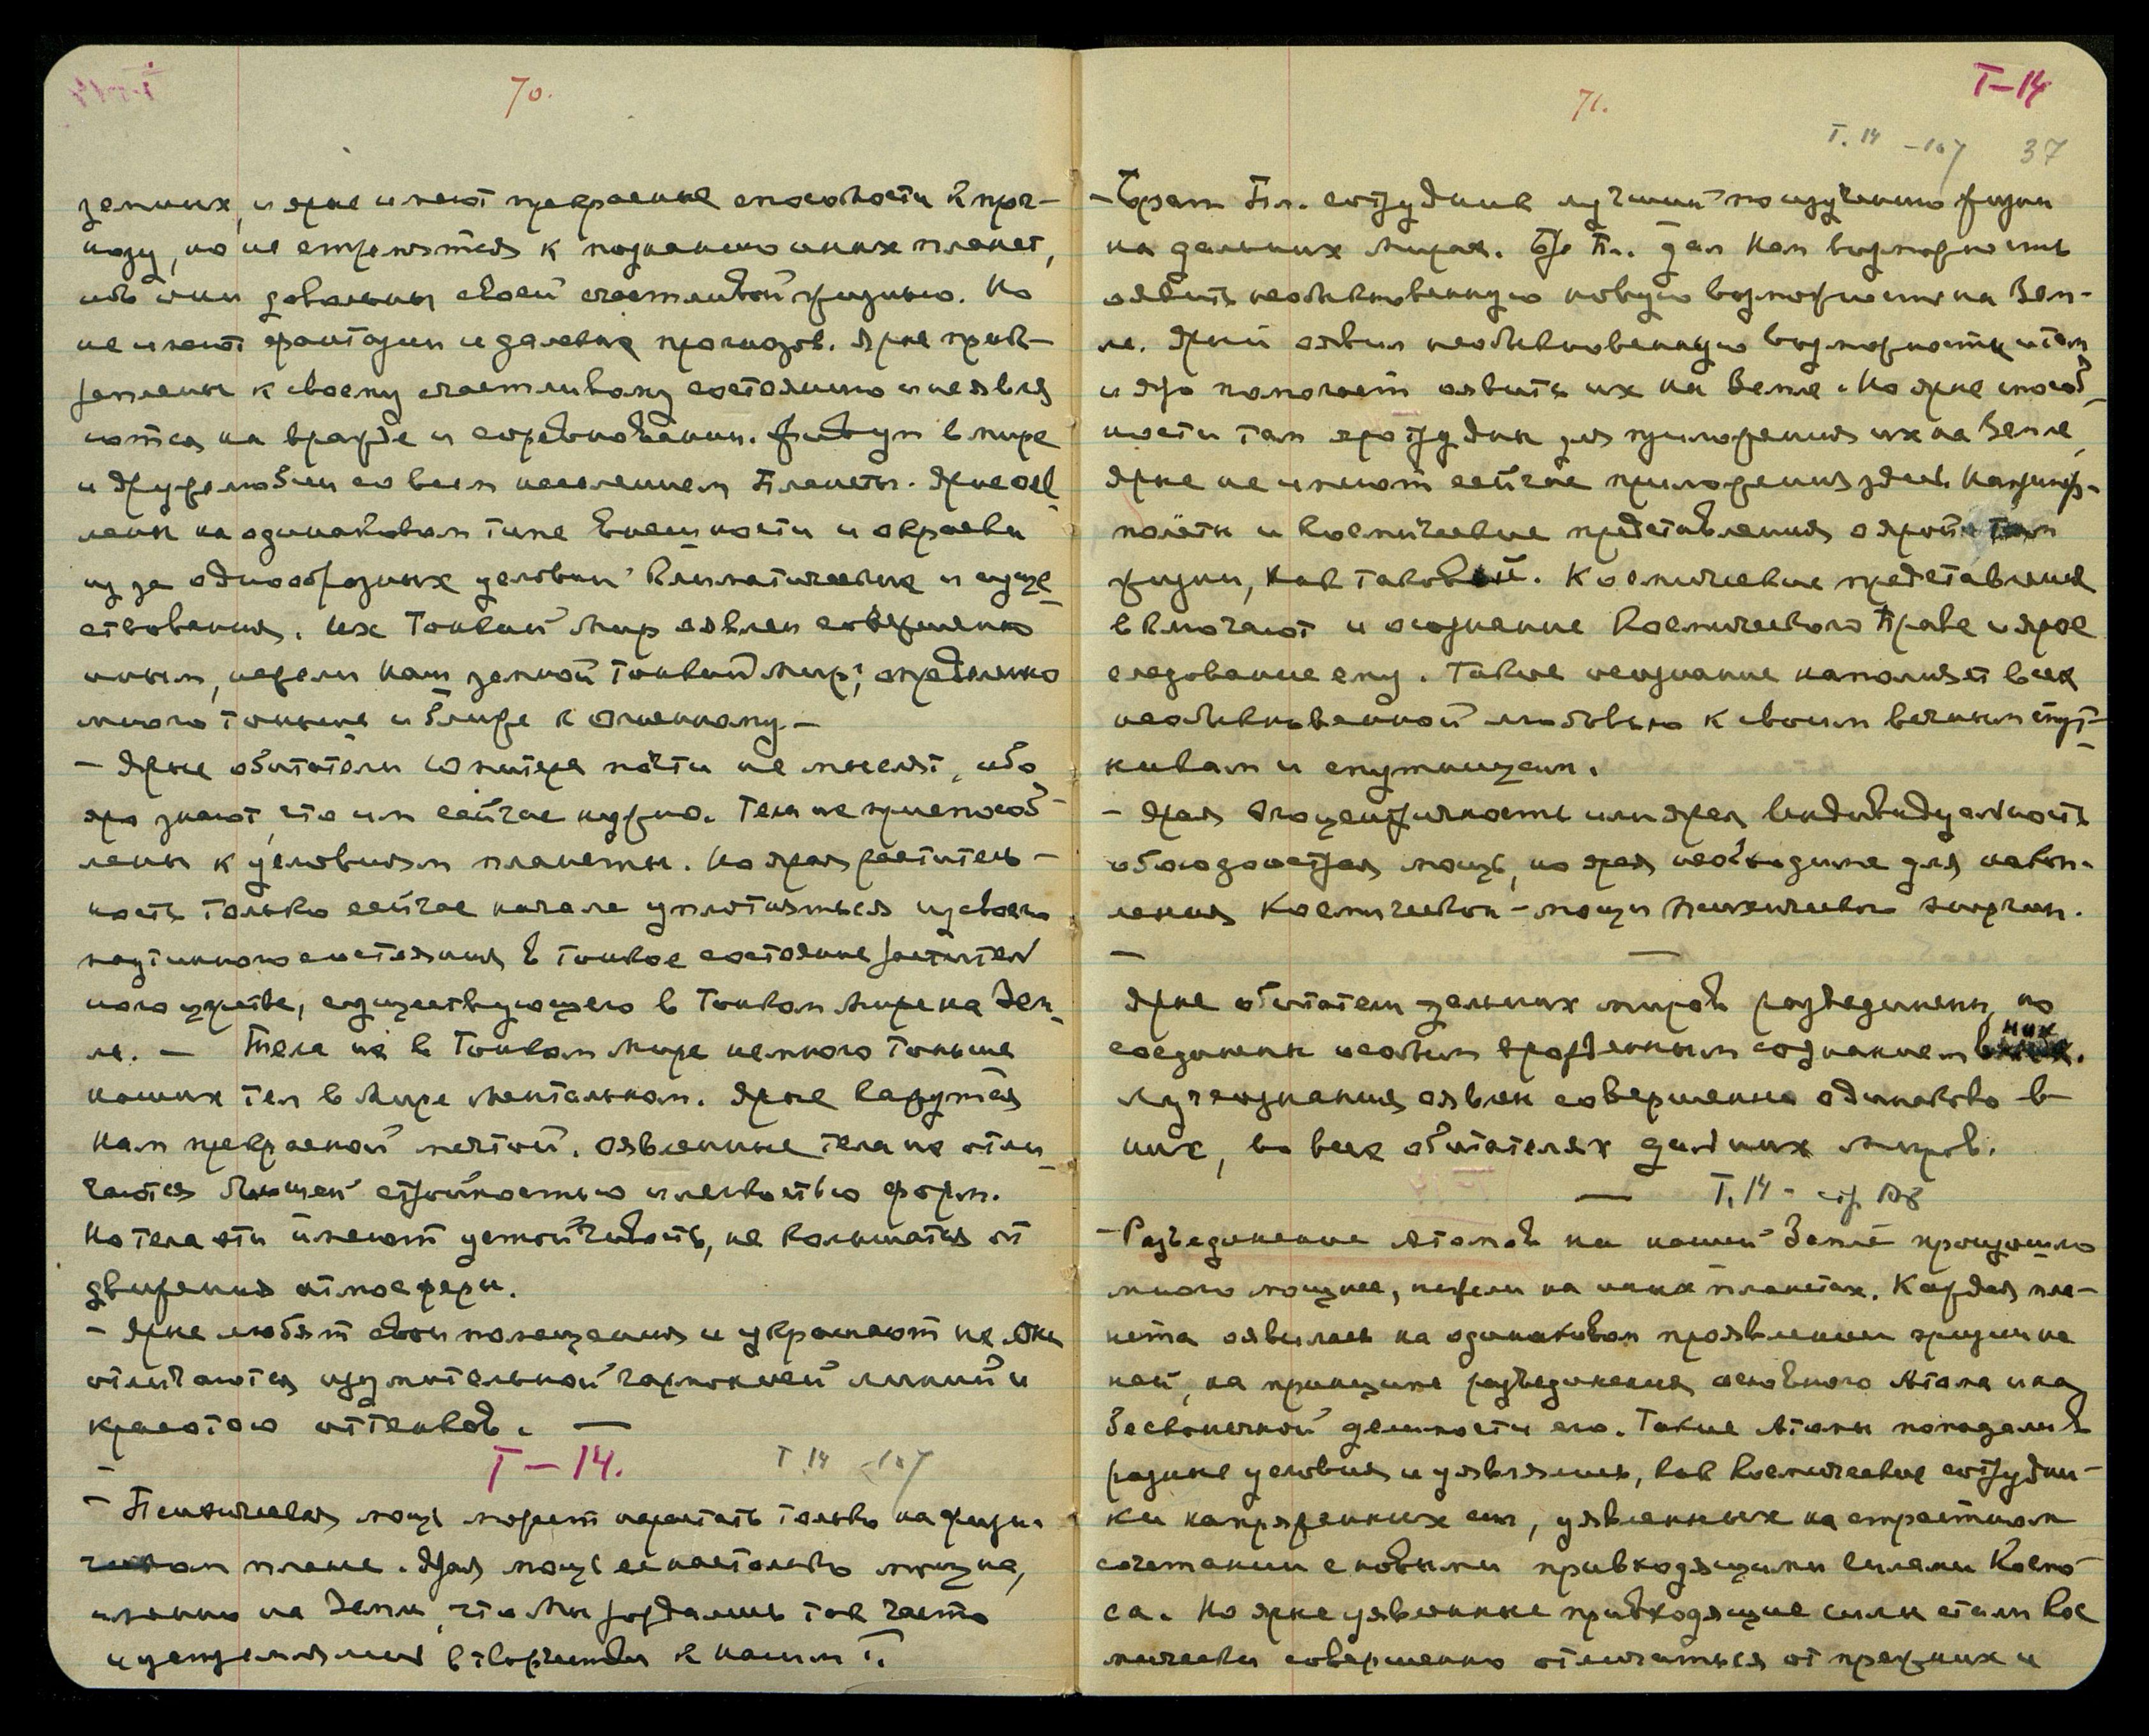 70.
земных, и ярые имеют прекрасные способности к прог-
нозу, но не стремятся к познанию иных планет,
ибо они довольны своей счастливой жизнью. Но
не имеют фантазии и далеких прогнозов. Ярые прив-
к своему счастливому состоянию и не явля
ются на вражде и соревновании. Живут в мире
и дружелюбии со всем населением Планеты. Ярые явл
лены на одинаковом типе внешности и окраски
из за однообразных условий климатических и суще
ствования. Их Тонкий Мир оявлен совершенно
иным, нежели наш земной Тонкий Мир; определенно
много тоньше и ближе к Огненному. —
— Ярые обитатели Юпитера почти не мыслят, ибо
яро знают, что им сейчас нужно. Тела их приспособ-
лены к условиям планеты. Но ярая раститель-
ность только сейчас начала уплотняться из своего
состояния в тонкое состояние растител
ного царства, существующего в Тонком Мире на Зем-
ле. — Тела их в Тонком Мире немного тоньше
наших тел в Мире Ментальном. Ярые кажутся
нам прекрасной мечтой. Оявленные тела их отли-
чаются большей стройностью и легкостью форм.
Но тела эти имеют устойчивость, не колышатся от
движения атмосферы.
— Ярые любят свои помещения и украшают их. Они
отличаются изумительной гармонией линий и
красотою оттенков. —
Т-14.
Т.14 -107
— Психическая мощь может нарастать только на физи-
ческом плане. Ярая мощь её настолько мощна,
именно на Земле, что Мы рождались так часто
и устремлялись в творчестве к нашим
Т-14
71.
Т.14 -107 37
— Брат Пл. сотрудник лучший по изучению жизни
на дальних мирах. Ур. Пл. дал Нам возможность
оявить необыкновенную новую возможность на Зем-
ле. Ярый оявил необыкновенную возможность и там
и яро помогает оявить их на Земле. Но ярые способ-
ности там яро трудны для приложения их на Земле,
Ярые не имеют сейчас приложения здесь. Например.
полёты и Космические представления о ярой там
жизни, как таковой. Космические представления
включают и осознание Космического Права и ярое
следование ему. Такое осознание наполняет всех
необыкновенной любовью к своим вечным спут-
никам и спутницам.
— Ярая Эгоцентричность или ярая Индивидуальность
обоюдоострая мощь, но ярая необходима для накоп-
ления Космической - мощи Психической энергии.
—
Ярые обитатели дальних миров разъединены, но
соединены особым врожденным сознанием в них.
Луч сознания оявлен совершенно одинаково в
них, во всех обитателях дальних миров.
— Т.14 - стр 108
— Разъединение Атомов на нашей Земле произошло
много мощнее, нежели на иных планетах. Каждая пла-
нета оявилась на одинаковом проявлении
ней, на принципе разъединения основного Атома и на
бесконечной делимости его. Такие Атомы попадали в
разные условия и уявлялись, как Космические сотрудни-
ки напряженных сил, уявленных на страстном
сочетании с новыми привходящими силами Космо-
са. Но ярые уявленные привходящие силы стали Кос
мически совершенно отличаться от прежних и